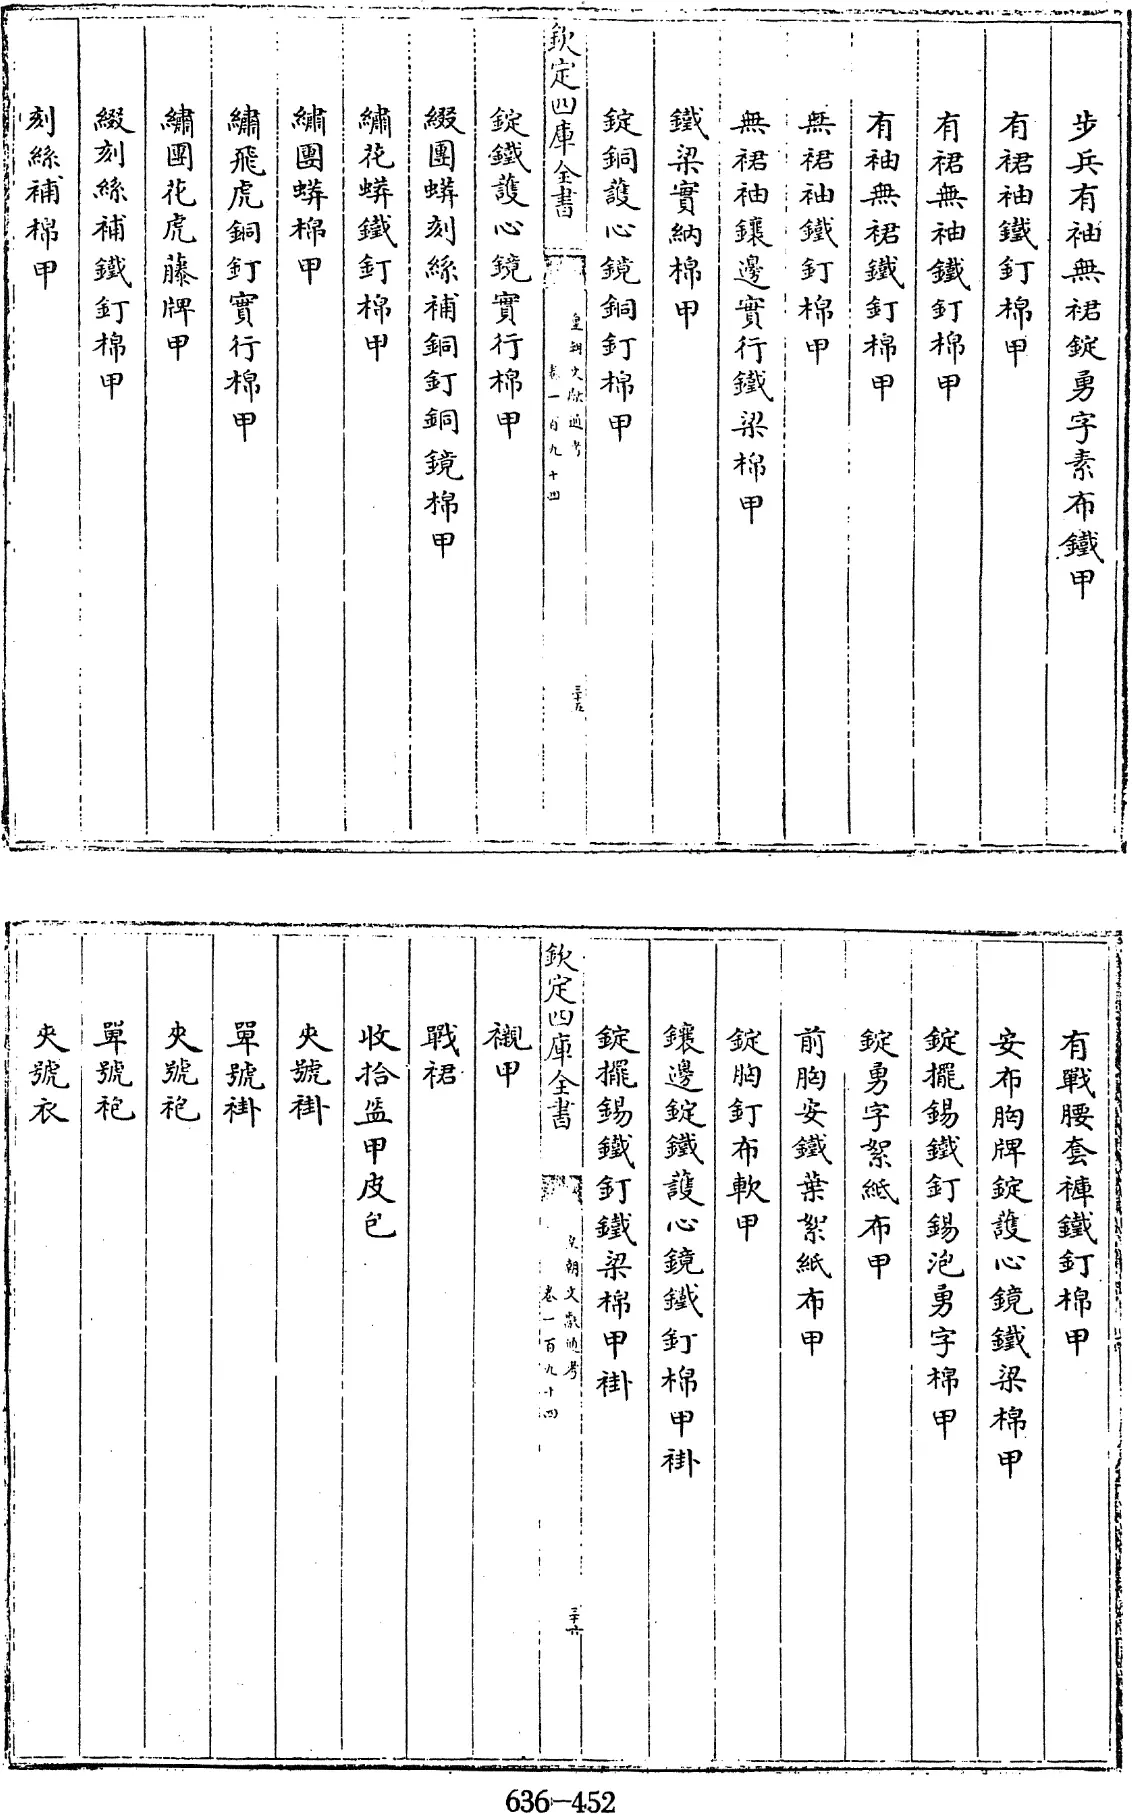 步兵有袖無裙錠勇字素布鐵甲
有裙袖鐵釘棉甲
有裙無袖鐵釘棉甲
有袖無裙鐵釘棉甲
無裙袖鐵釘棉甲
無裙袖鑲邊實行鐵梁棉甲
鐵梁實納棉甲
錠銅護心鏡銅釘棉甲
欽定四庫全書
皇朝文獻通考
卷一百九十四
三十五
錠鐵護心鏡實行棉甲
綴團蟒刻絲補銅釘銅鏡棉甲
繡花蟒鐵釘棉甲
繡團蟒棉甲
繡飛虎銅釘實行棉甲
繡團花虎藤牌甲
綴刻絲補鐵釘棉甲
刻絲補棉甲
有戰腰套褲鐵釘棉甲
安布胸牌錠護心鏡鐵梁棉甲
錠擺錫鐵釘錫泡勇字棉甲
錠勇字絮紙布甲
前胸安鐵葉絮紙布甲
錠胸釘布軟甲
鑲邊錠鐵護心鏡鐵釘棉甲褂
錠擺錫鐵釘鐵梁棉甲褂
欽定四庫全書
皇朝文獻通考
卷一百九十四
三十六
襯甲
戰裙
收拾盔甲皮包
夾號褂
單號褂
夾號袍
單號袍
夾號衣
636-452